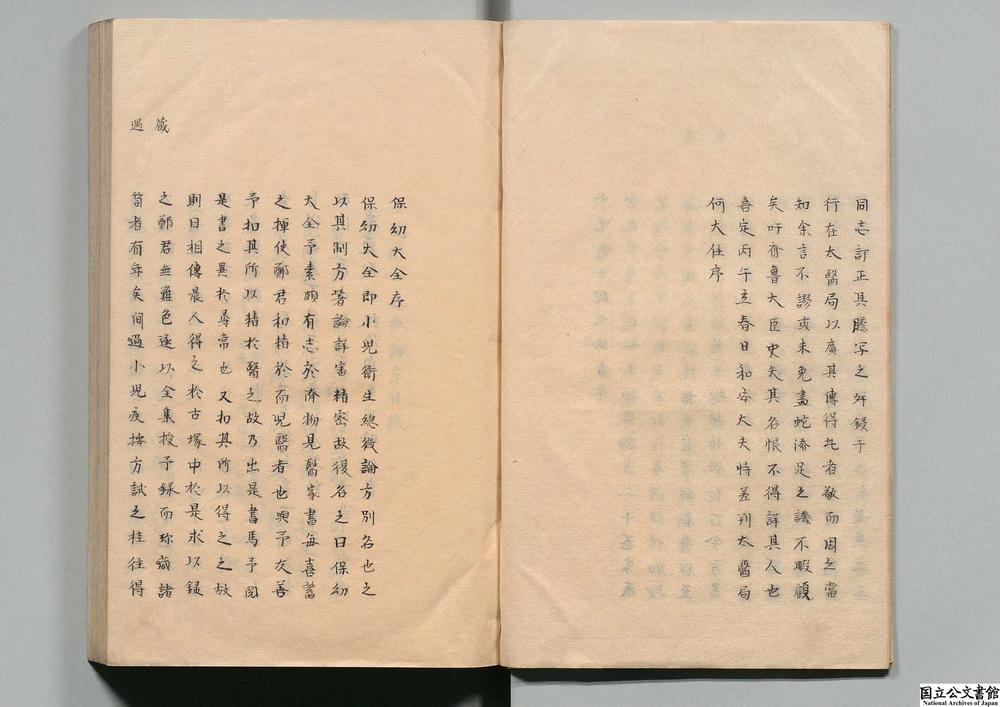 同志訂正其謄写之舛鋟于
行在太醫局以廣其傳得此者敬而周之當
知余言不謬或未免畫蛇添足之譏不暇顧
矣吁齊魯大臣史失其名恨不得詳其人也
嘉定丙午立春日和安大夫特差判太醫局
何大任序
保幼大全序
保幼大全即小児衛生總微論方別名也之
以其制方著論詳審精密故復名之曰保幼
大全予素頗有志於濟物見醫家書每喜蓄
之揮使鄭君和精於而児醫者也與予友善
予扣其所以精於醫之故乃出是書焉予閱
是書之異於尋常也又扣其所以得之之故
則曰相傳晨人得之於古塚中於是求以録
之鄭君無難色遂以全集授予録而珎藏諸
笥者有年矣間過小児疾按方試之往往得
藏
遇
国立公文書館
National Archives of Japan